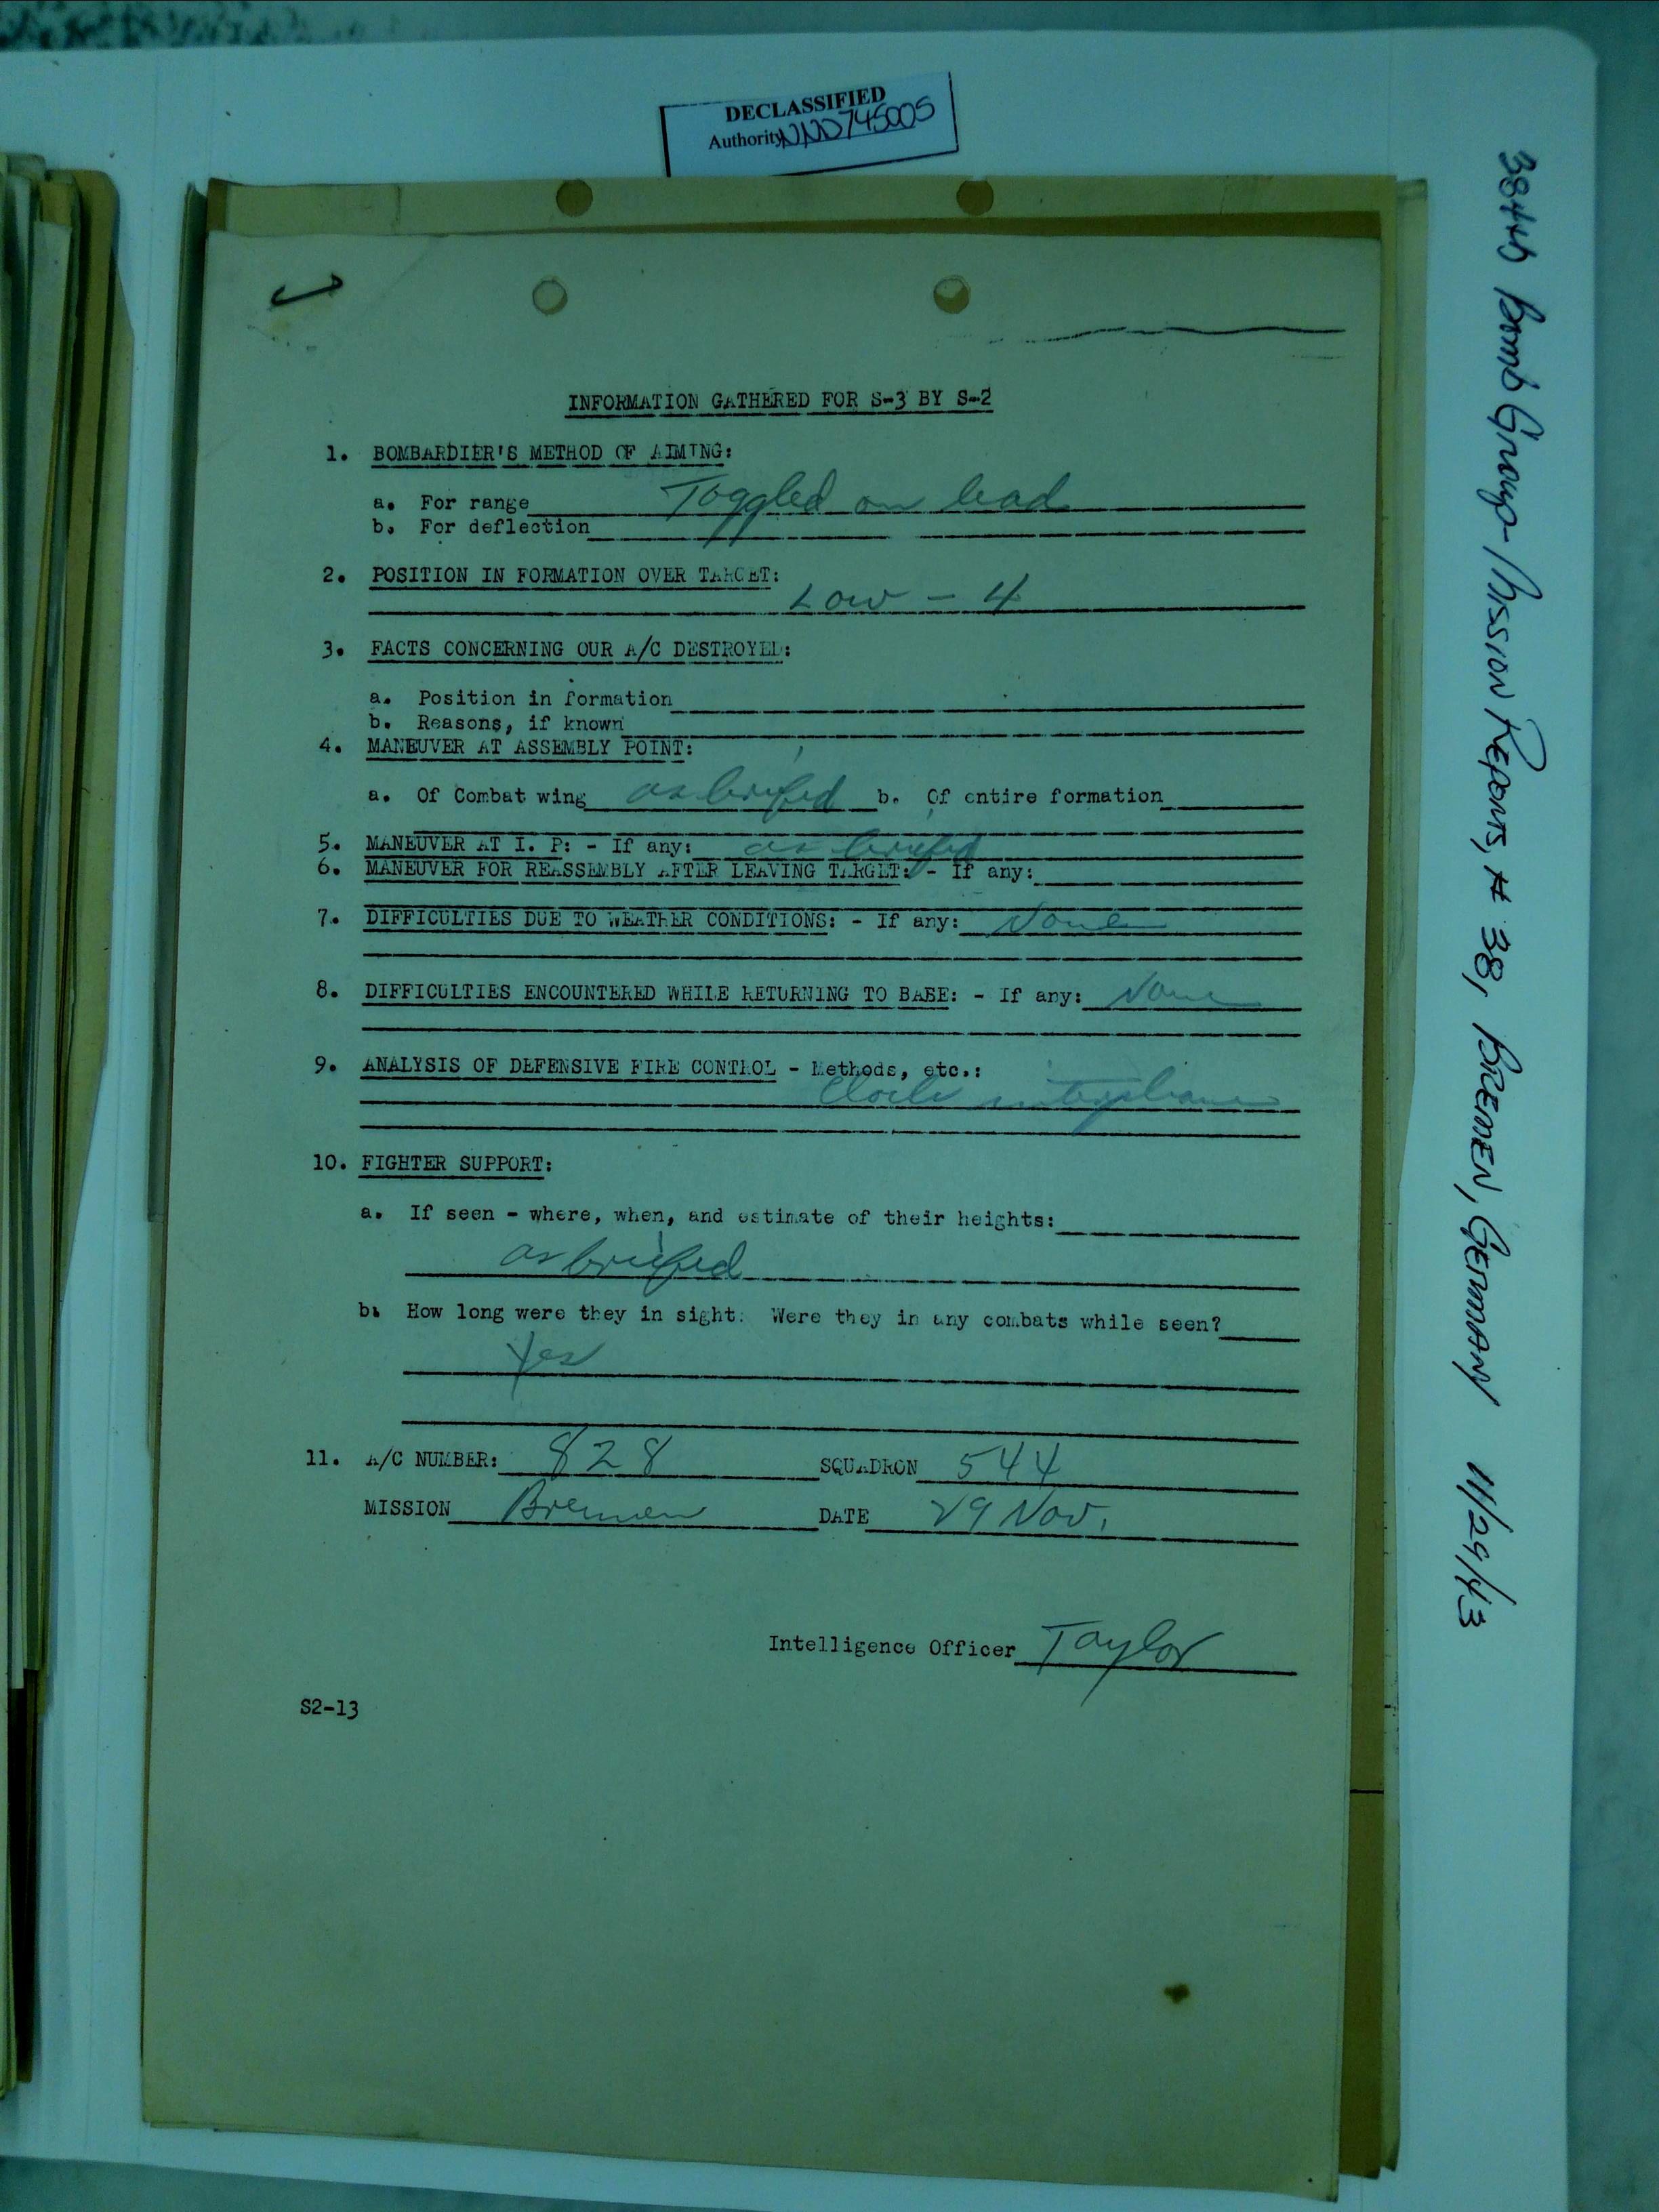 DECLASSIFIED
Authority NND745005
INFORMATION GATHERED FOR S-3 BY S-2
1. BOMBARDIER'S METHOD OF AIMING:
a. For range Toggled on lead
b. For deflection
2. POSITION IN FORMATION OVER TARGET:
Low - 4
3. FACTS CONCERNING OUR A/C DESTROYED:
a. Position in formation
b. Reasons, if known
4. MANEUVER AT ASSEMBLY POINT:
a. Of Combat wing as briefed b. Of entire formation
5. MANEUVER AT I. P: - If any: as briefed
6. MANEUVER FOR REASSEMBLY AFTER LEAVING TARGET: - If any:
7. DIFFICULTIES DUE TO WEATHER CONDITIONS: - If any: None
8. DIFFICULTIES ENCOUNTERED WHILE RETURNING TO BASE: - If any: None
9. ANALYSIS OF DEFENSIVE FIRE CONTROL - Methods, etc.:
Clock interphone
10. FIGHTER SUPPORT:
a. If seen - where, when, and estimate of their heights:
as briefed
b. How long were they in sight. Were they in any combats while seen?
Yes
11. A/C NUMBER: 828 SQUADRON 544
MISSION Bremen DATE 29 Nov.
Intelligence Officer Taylor
S2-13
384th Bomb Group- Mission Reports, # 38, BREMEN, GERMANY 11/29/43